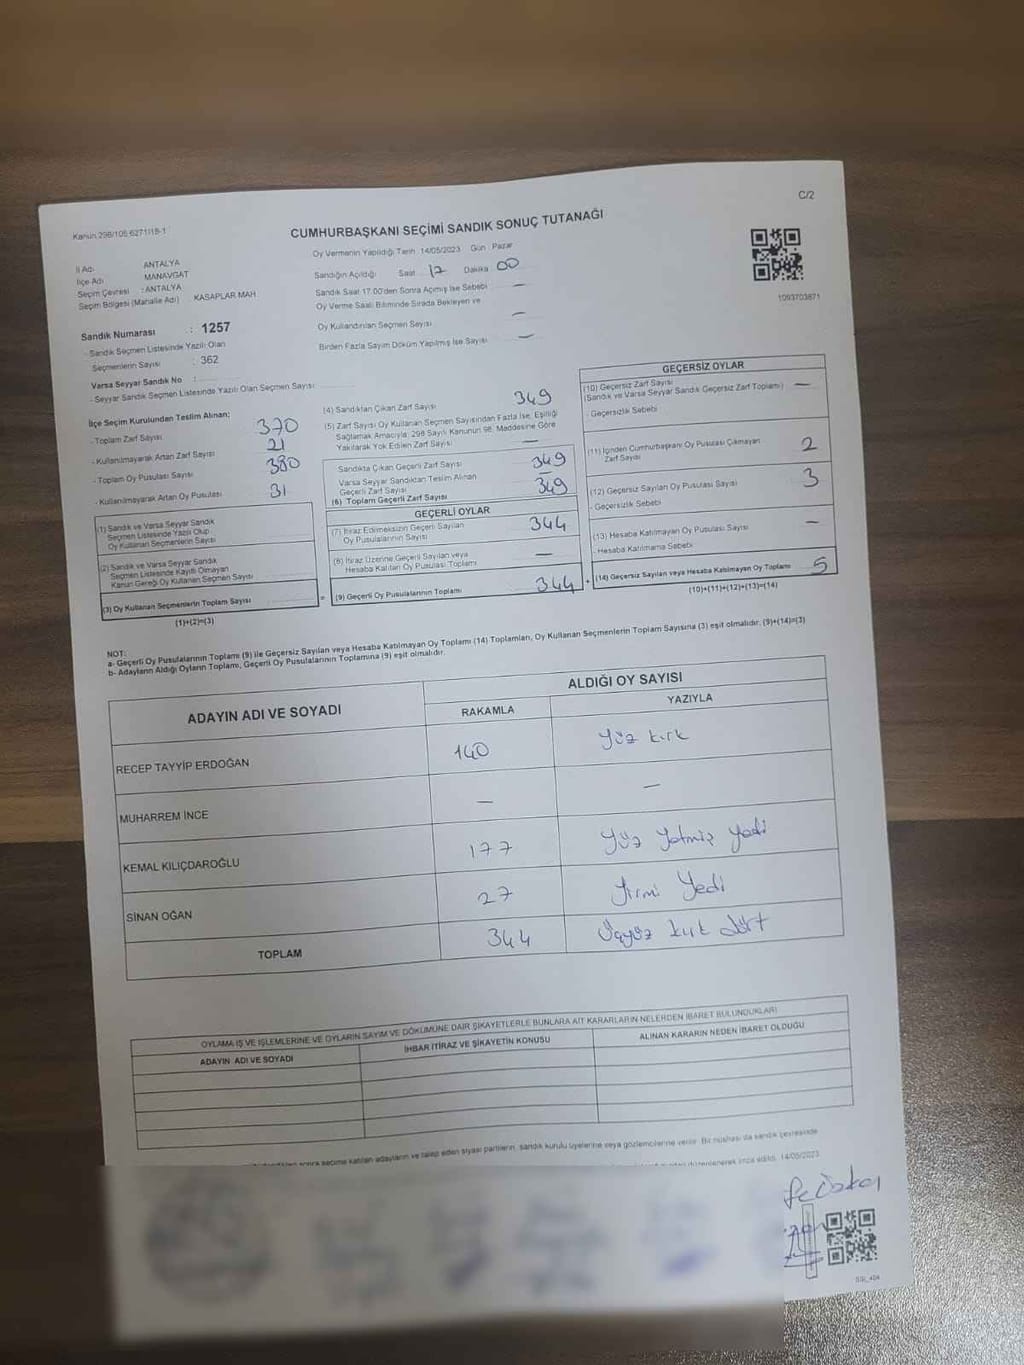 Kanun 298/105 6271/18-1
C/2
CUMHURBAŞKANI SEÇİMİ SANDIK SONUÇ TUTANAĞI
Oy Vermenin Yapıldığı Tarih : 14/05/2023 Gün : Pazar
İl Adı ANTALYA
İlçe Adı MANAVGAT
Seçim Çevresi : ANTALYA
Seçim Bölgesi (Mahalle Adı) KASAPLAR MAH
Sandığın Açıldığı Saat 17 Dakika 00
Sandık Saat 17.00'den Sonra Açılmış İse Sebebi —
Oy Verme Saati Bitiminde Sırada Bekleyen ve
Oy Kullandırılan Seçmen Sayısı —
Birden Fazla Sayım Döküm Yapılmış İse Sayısı —
1093703871
Sandık Numarası : 1257
- Sandık Seçmen Listesinde Yazılı Olan
Seçmenlerin Sayısı : 362
Varsa Seyyar Sandık No :
- Seyyar Sandık Seçmen Listesinde Yazılı Olan Seçmen Sayısı
İlçe Seçim Kurulundan Teslim Alınan:
- Toplam Zarf Sayısı 370
- Kullanılmayarak Artan Zarf Sayısı 21
- Toplam Oy Pusulası Sayısı 380
- Kullanılmayarak Artan Oy Pusulası 31
(1) Sandık ve Varsa Seyyar Sandık
Seçmen Listesinde Yazılı Olup
Oy Kullanan Seçmenlerin Sayısı
(2) Sandık ve Varsa Seyyar Sandık
Seçmen Listesinde Kayıtlı Olmayan
Kanun Gereği Oy Kullanan Seçmen Sayısı
(3) Oy Kullanan Seçmenlerin Toplam Sayısı
(1)+(2)=(3)
(4) Sandıktan Çıkan Zarf Sayısı 349
(5) Zarf Sayısı Oy Kullanan Seçmen Sayısından Fazla İse, Eşitliği
Sağlamak Amacıyla, 298 Sayılı Kanunun 98. Maddesine Göre
Yakılarak Yok Edilen Zarf Sayısı —
Sandıkta Çıkan Geçerli Zarf Sayısı 349
Varsa Seyyar Sandıktan Teslim Alınan
Geçerli Zarf Sayısı —
(6) Toplam Geçerli Zarf Sayısı 349
GEÇERLİ OYLAR
(7) İtiraz Edilmeksizin Geçerli Sayılan
Oy Pusulalarının Sayısı 344
(8) İtiraz Üzerine Geçerli Sayılan veya
Hesaba Katılan Oy Pusulası Toplamı —
= (9) Geçerli Oy Pusulalarının Toplamı 344
GEÇERSİZ OYLAR
(10) Geçersiz Zarf Sayısı —
(Sandık ve Varsa Seyyar Sandık Geçersiz Zarf Toplamı)
- Geçersizlik Sebebi
(11) İçinden Cumhurbaşkanı Oy Pusulası Çıkmayan
Zarf Sayısı 2
(12) Geçersiz Sayılan Oy Pusulası Sayısı 3
- Geçersizlik Sebebi
(13) Hesaba Katılmayan Oy Pusulası Sayısı —
- Hesaba Katılmama Sebebi
+ (14) Geçersiz Sayılan veya Hesaba Katılmayan Oy Toplamı 5
(10)+(11)+(12)+(13)=(14)
NOT:
a- Geçerli Oy Pusulalarının Toplamı (9) ile Geçersiz Sayılan veya Hesaba Katılmayan Oy Toplamı (14) Toplamları, Oy Kullanan Seçmenlerin Toplam Sayısına (3) eşit olmalıdır. (9)+(14)=(3)
b- Adayların Aldığı Oyların Toplamı, Geçerli Oy Pusulalarının Toplamına (9) eşit olmalıdır.
ADAYIN ADI VE SOYADI
ALDIĞI OY SAYISI
RAKAMLA YAZIYLA
RECEP TAYYİP ERDOĞAN 140 Yüz kırk
MUHARREM İNCE — —
KEMAL KILIÇDAROĞLU 177 Yüz Yetmiş Yedi
SİNAN OĞAN 27 Yirmi Yedi
TOPLAM 344 Üçyüz kırk dört
OYLAMA İŞ VE İŞLEMLERİNE VE OYLARIN SAYIM VE DÖKÜMÜNE DAİR ŞİKAYETLERLE BUNLARA AİT KARARLARIN NELERDEN İBARET BULUNDUKLARI
ADAYIN ADI VE SOYADI İHBAR İTİRAZ VE ŞİKAYETİN KONUSU ALINAN KARARIN NEDEN İBARET OLDUĞU
sonra seçime katılan adayların ve talep eden siyasi partilerin, sandık kurulu üyelerine veya gözlemcilerine verilir. Bir nüshası da sandık çevresinde
düzenlenerek imza edildi. 14/05/2023